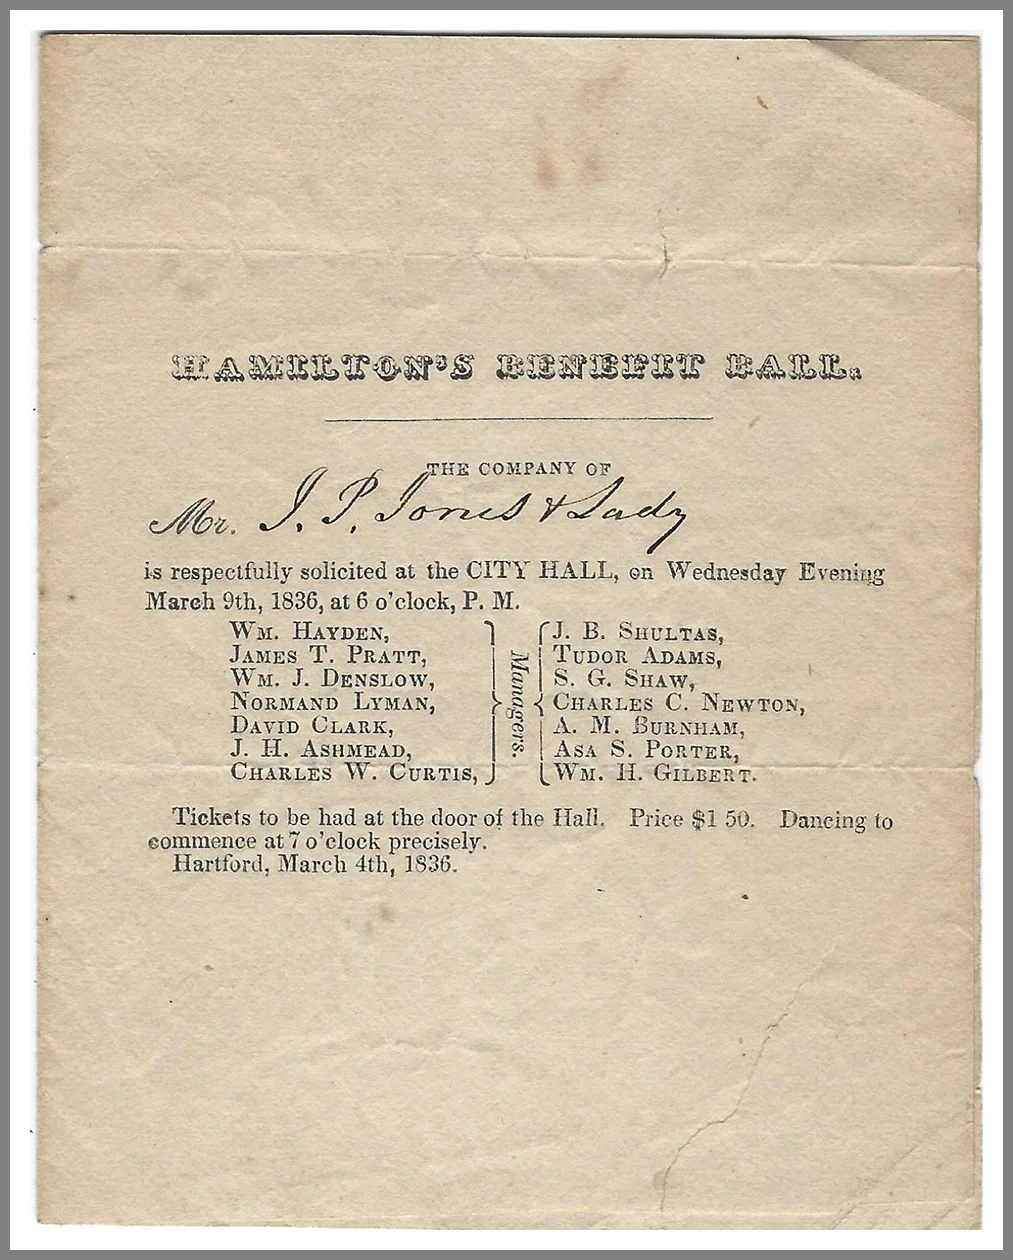 HAMILTON'S BENEFIT BALL.
THE COMPANY OF
Mr. J. P. Jones & Lady
is respectfully solicited at the CITY HALL, on Wednesday Evening
March 9th, 1836, at 6 o'clock, P. M.
WM. HAYDEN,
JAMES T. PRATT,
WM. J. DENSLOW,
NORMAND LYMAN,
DAVID CLARK,
J. H. ASHMEAD,
CHARLES W. CURTIS,
Managers.
J. B. SHULTAS,
TUDOR ADAMS,
S. G. SHAW,
CHARLES C. NEWTON,
A. M. BURNHAM,
ASA S. PORTER,
WM. H. GILBERT.
Tickets to be had at the door of the Hall. Price $1 50. Dancing to
commence at 7 o'clock precisely.
Hartford, March 4th, 1836.